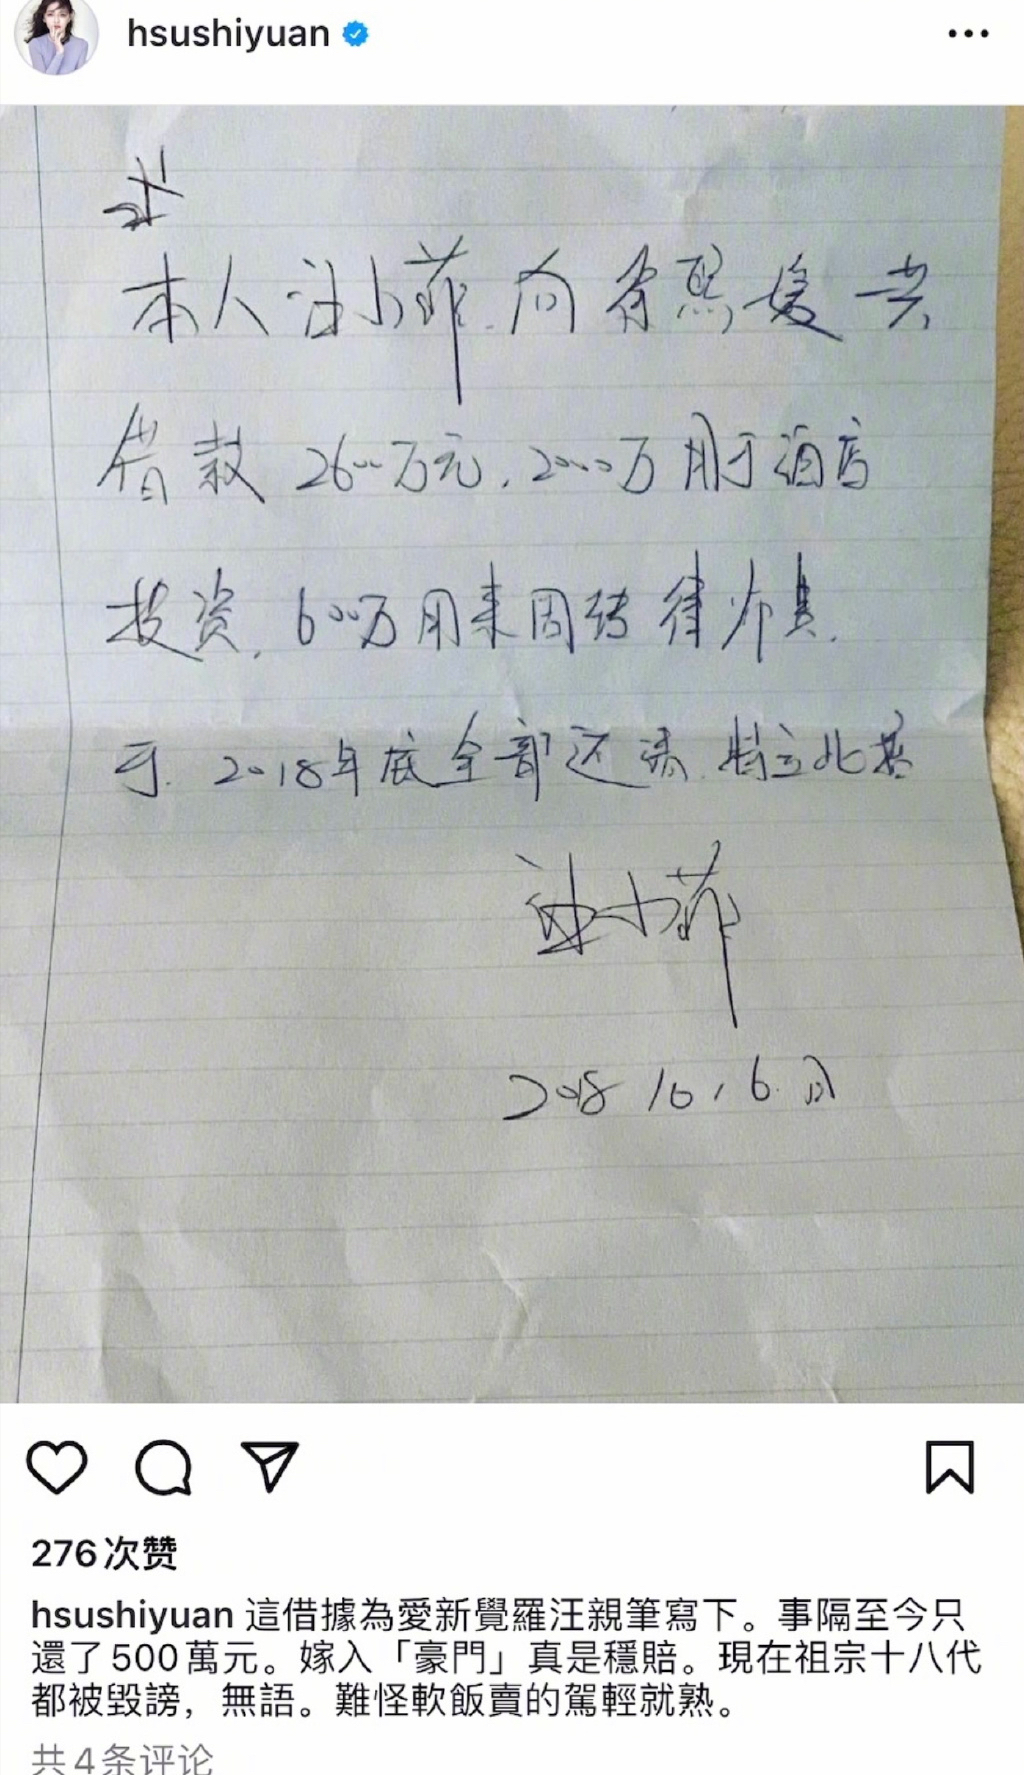 hsushiyuan
本人汪小菲.向徐熙媛共
借款2600万元.2000万用于酒店
投资.600万用来周转律师费.
于.2018年底全部还清.特立此据
汪小菲
2018 10,6.日
276次赞
hsushiyuan 這借據為愛新覺羅汪親筆寫下。事隔至今只
還了500萬元。嫁入「豪門」真是穩賠。現在祖宗十八代
都被毀謗，無語。難怪軟飯賣的駕輕就熟。
共4条评论